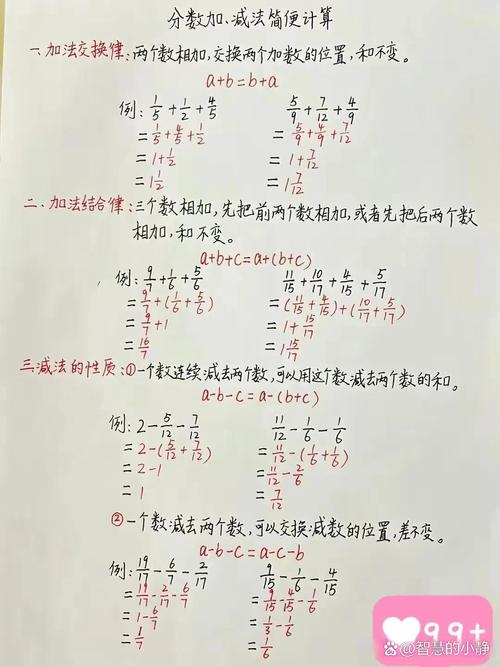 分数加、减法简便计算
一、加法交换律:两个数相加,交换两个加数的位置,和不变。
a+b=b+a
例: 1/5+1/2+4/5    5/9+7/12+4/9
=1/5+4/5+1/2    =5/9+4/9+7/12
=1+1/2    =1+7/12
=1 1/2    1 7/12
二、加法结合律:三个数相加,先把前两个数相加,或者先把后两个数
相加,和不变。
a+b+c=a+(b+c)
例: 9/7+1/6+5/6    11/15+10/17+4/15+5/17
=9/7+(1/6+5/6)    =(11/15+4/15)+(10/17+5/17)
=9/7+1    =1+15/17
=16/7    =1 15/17
三.减法的性质:①一个数连续减去两个数,可以用这个数减去两个数的和。
a-b-c=a-(b+c)
例: 2-5/12-7/12    11/12-1/6-1/6
=2-(5/12+7/12)    =11/12-(1/6+1/6)
=2-1    =11/12-2/6
=1    =7/12
②一个数减去两个数,可以交换减数的位置,差不变。
a-b-c=a-c-b
例: 19/17-6/7-2/17    9/15-1/6-4/15
=19/17-2/17-6/7    =9/15-4/15-1/6
=1-6/7    =1/3-1/6
=1/7    =1/6
99+
@智慧的小静